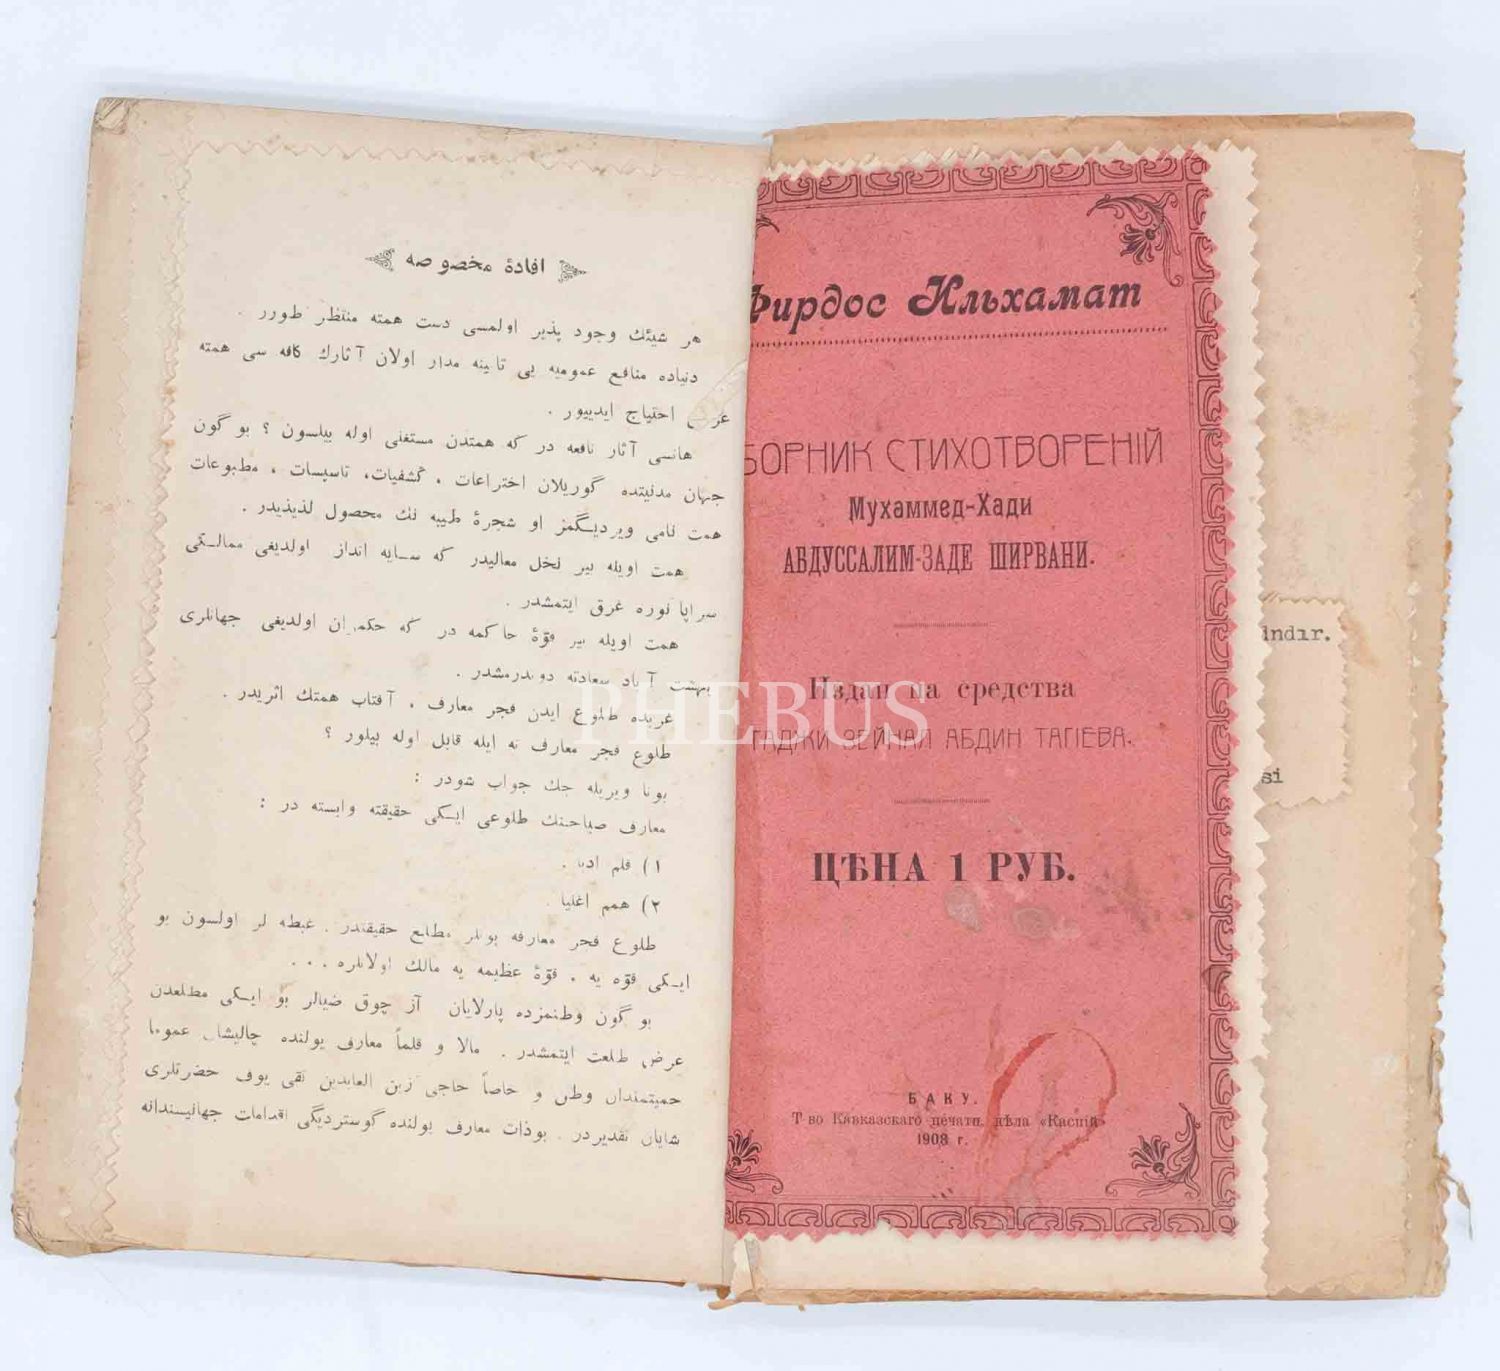 افادۀ مخصوصه
هر شیئك وجود پذیر اولمسی دست همته منتظر طورر .
دنیاده منافع عمومیه یی تامینه مدار اولان آثارك كافه سی همته
احتیاج ایدییور .
هانسی آثار نافعه در كه همتدن مستغنی اوله بیلسون ؟ بو گون
جهان مدنیتده گوریلان اختراعات ، كشفیات، تاسیسات ، مطبوعات
همت نامی ویردیگمز او شجرۀ طیبه نك محصول لذیذیدر .
همت اویله بیر نخل معالیدر كه سایه انداز اولدیغی ممالكی
سراپا نوره غرق ایتمشدر .
همت اویله بیر قوۀ حاكمه در كه حكمران اولدیغی جهانلری
بهشت آباد سعادته دوندرمشدر .
غربده طلوع ایدن فجر معارف ، آفتاب همتك اثریدر .
طلوع فجر معارف نه ایله قابل اوله بیلور ؟
بونا ویریله جك جواب شودر :
معارف صباحنك طلوعی ایكی حقیقته وابسته در :
۱) قلم ادبا .
۲) همم اغنیا .
طلوع فجر معارفه بونلر مطلع حقیقتدر . غبطه لر اولسون بو
ایكی قوه یه ، قوۀ عظیمه یه مالك اولانلره . . .
بو گون وطنمزده پارلایان آز چوق ضیالر بو ایكی مطلعدن
عرض طلعت ایتمشدر . مالا و قلماً معارف یولنده چالیشان عموما
حمیتمندان وطن و خاصاً حاجی زین العابدین تقی یوف حضرتلری
شایان تقدیردر . بوذات معارف یولنده گوستردیگی اقدامات جهانپسندانه
Фирдос Ильхамат
БОРНИК СТИХОТВОРЕНІЙ
Мухаммед-Хади
АБДУССАЛИМ-ЗАДЕ ШИРВАНИ.
Издан на средства
АДЖИ ЗЕЙНАЛ АБДИН ТАГІЕВА.
ЦѢНА 1 РУБ.
БАКУ.
Т-во Кавказскаго печатн. дѣла «Каспій»
1908 г.
ındır.
si
PHEBUS